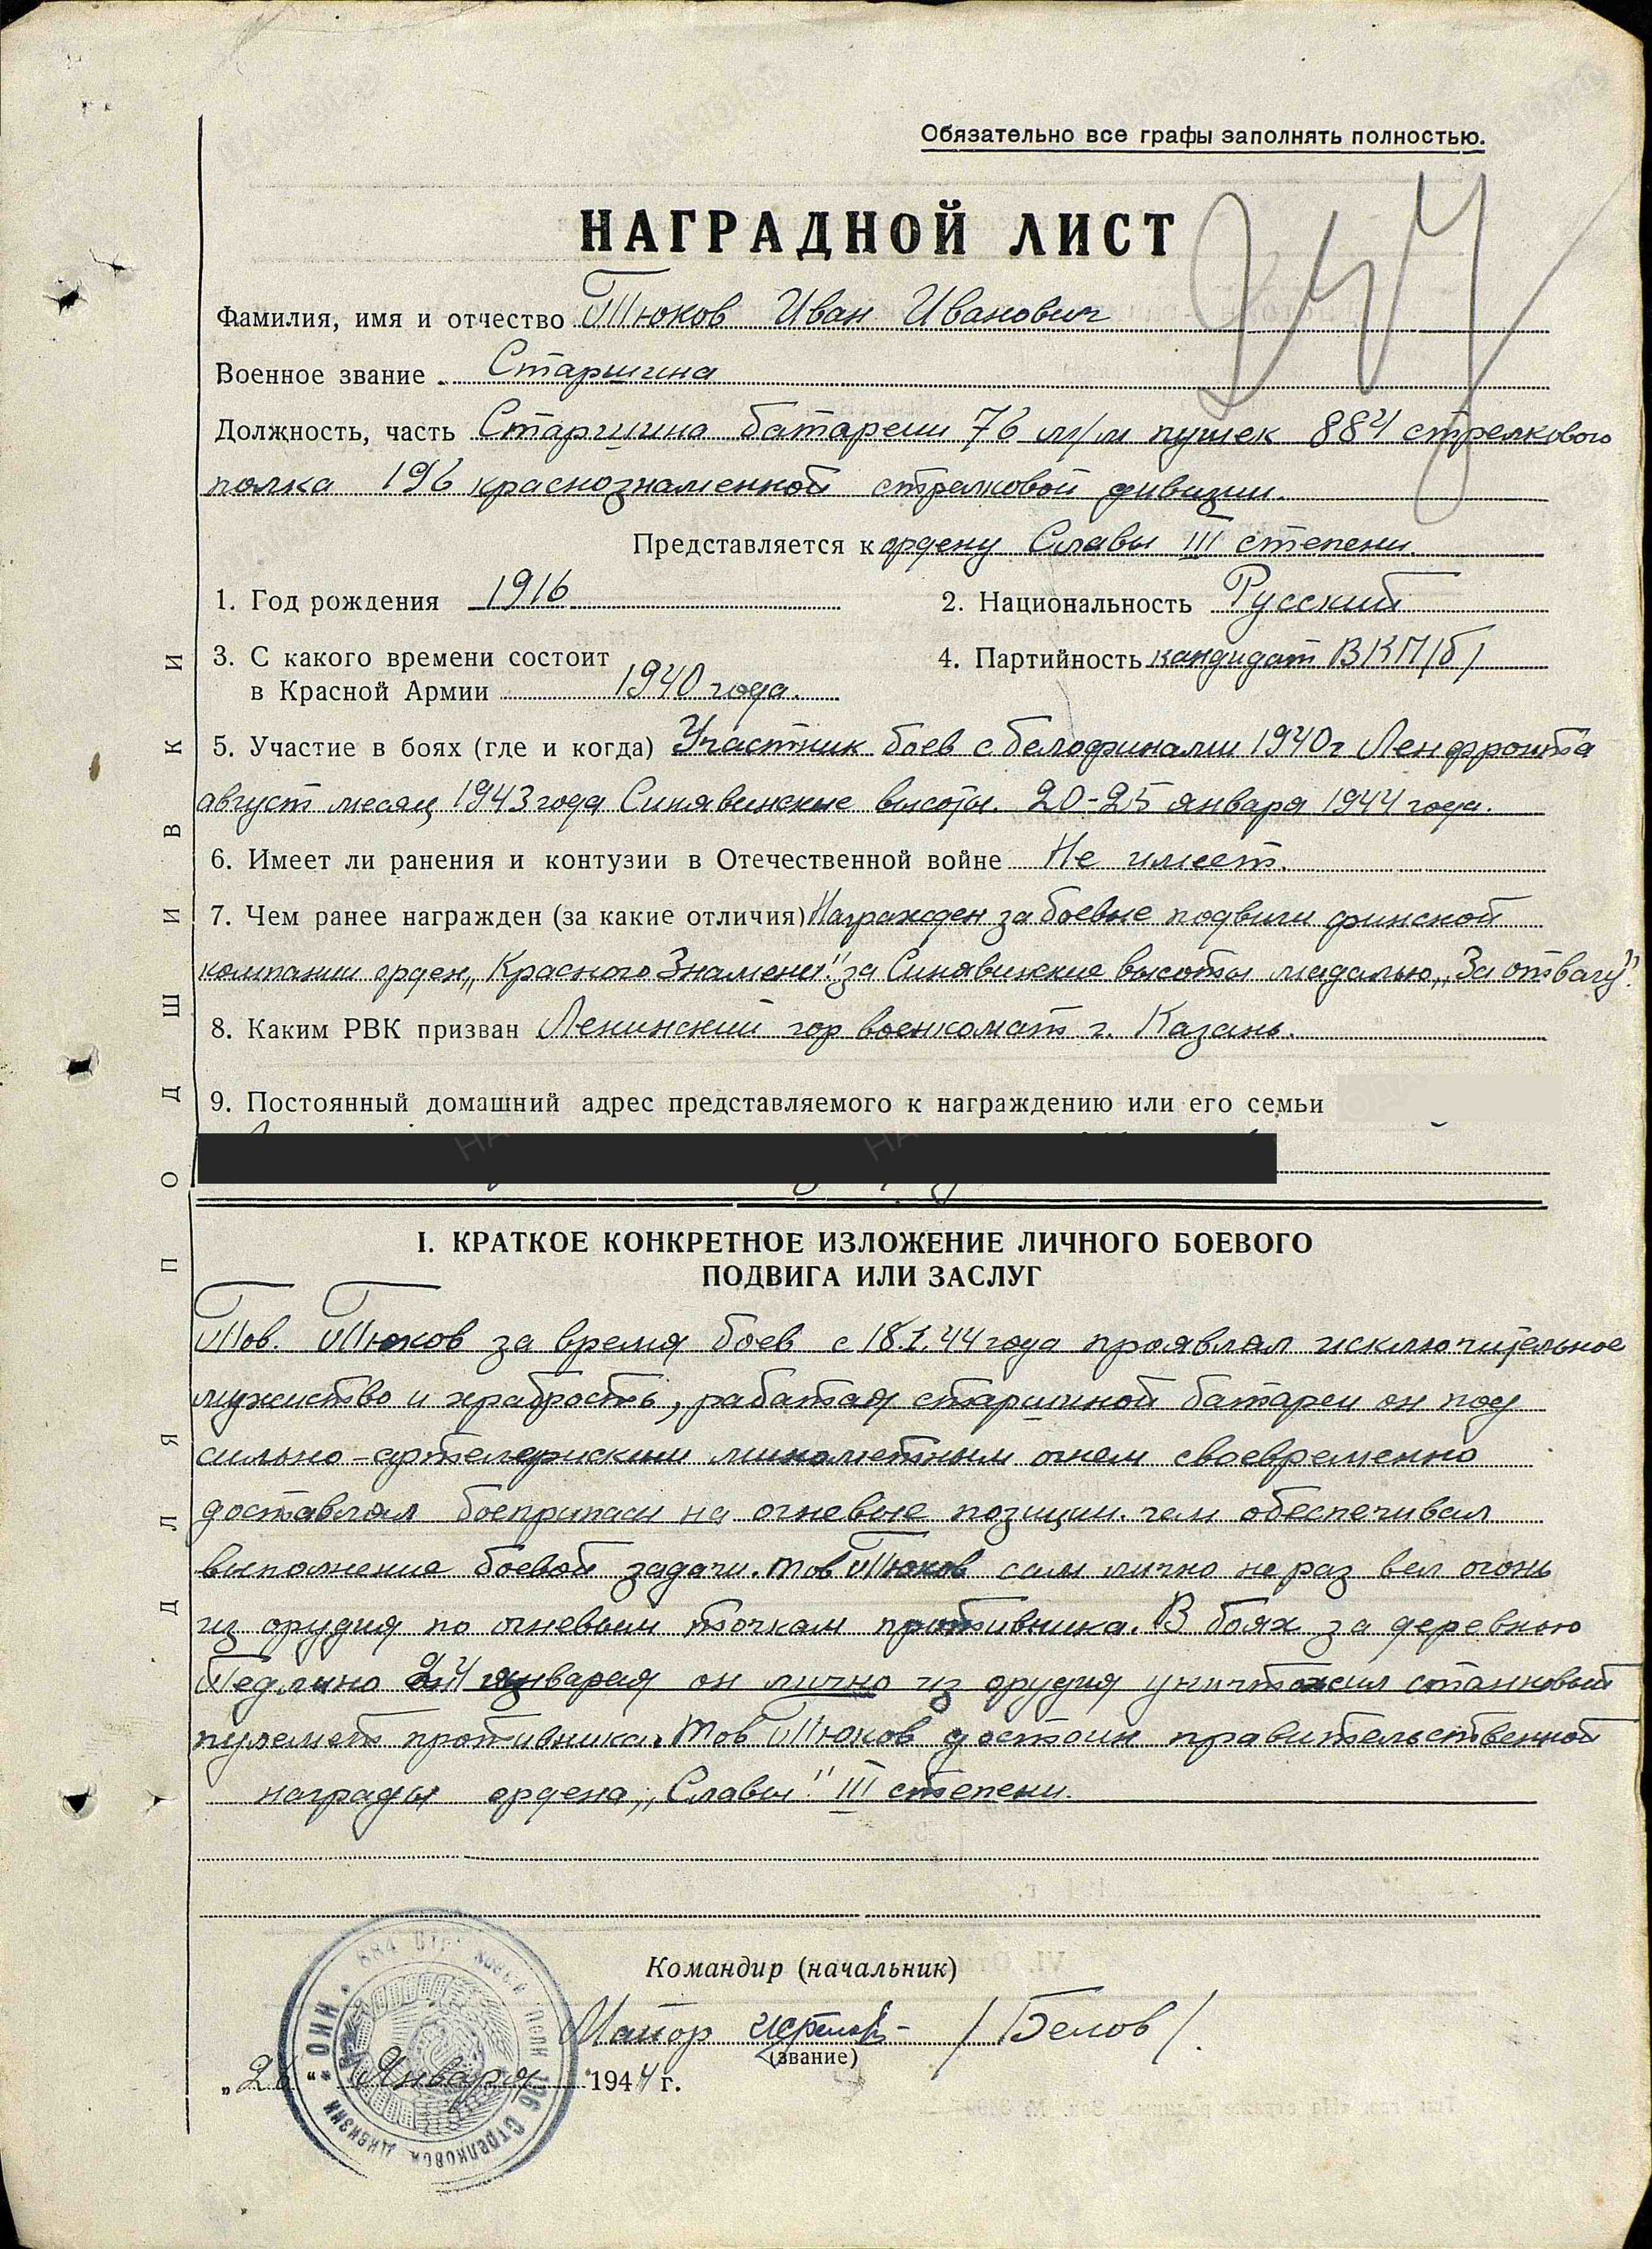 Обязательно все графы заполнять полностью.
НАГРАДНОЙ ЛИСТ
Фамилия, имя и отчество Тюков Иван Иванович
Военное звание Старшина
Должность, часть Старшина батареи 76 м/м пушек 884 стрелкового
полка 196 краснознаменной стрелковой дивизии.
Представляется к ордену Славы III степени.
1. Год рождения 1916
2. Национальность Русский
3. С какого времени состоит
в Красной Армии 1940 года.
4. Партийность кандидат ВКП/б/
5. Участие в боях (где и когда) Участник боев с белофинами 1940 г Ленфронта
август месяц 1943 года Синявинские высоты. 20-25 января 1944 года.
6. Имеет ли ранения и контузии в Отечественной войне Не имеет.
7. Чем ранее награжден (за какие отличия) Награжден за боевые подвиги финской
компании орден „Красного Знамени" за Синявинские высоты медалью „За отвагу".
8. Каким РВК призван Ленинский гор военкомат г. Казань.
9. Постоянный домашний адрес представляемого к награждению или его семьи
I. КРАТКОЕ КОНКРЕТНОЕ ИЗЛОЖЕНИЕ ЛИЧНОГО БОЕВОГО
ПОДВИГА ИЛИ ЗАСЛУГ
Тов. Тюков за время боев с 18.1.44 года проявлял исключительное
мужиство и храбрость, работая старшиной батареи он под
сильно-артелерискими минометным огнем своевременно
доставлял боеприпасы на огневые позиции. чем обеспечивал
выполнение боевой задачи. тов Тюков сам лично не раз вел огонь
из орудия по огневым точкам противника. В боях за деревню
24 января он лично из орудия уничтожил станковый
пулемет противника. Тов Тюков достоин правительственной
награды ордена „Славы" III степени.
Командир (начальник)
Майор /Белов/.
(звание)
„26" Января 1944 г.
884 СТРЕЛКОВЫЙ ПОЛК 196 СТРЕЛКОВОЙ ДИВИЗИИ
ДЛЯ ПОДШИВКИ